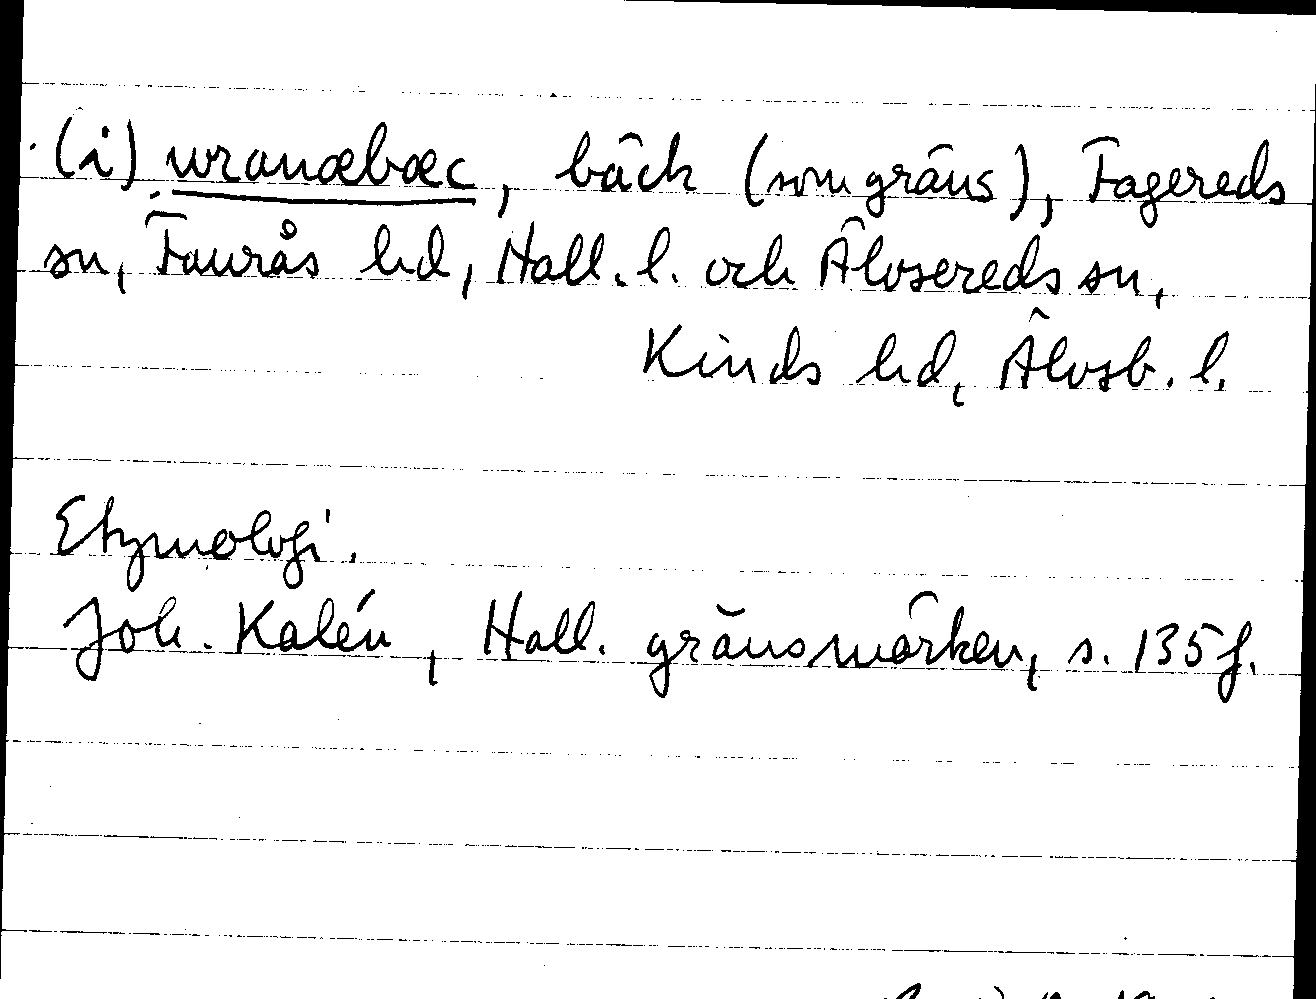 (i) wranæbæc, bäck (som gräns), Fagereds
sn, Faurås hd, Hall. l. och Älvsereds sn,
Kinds hd, Älvsb. l.
Etymologi.
Joh. Kalén, Hall. gränsmärken, s. 135 f.